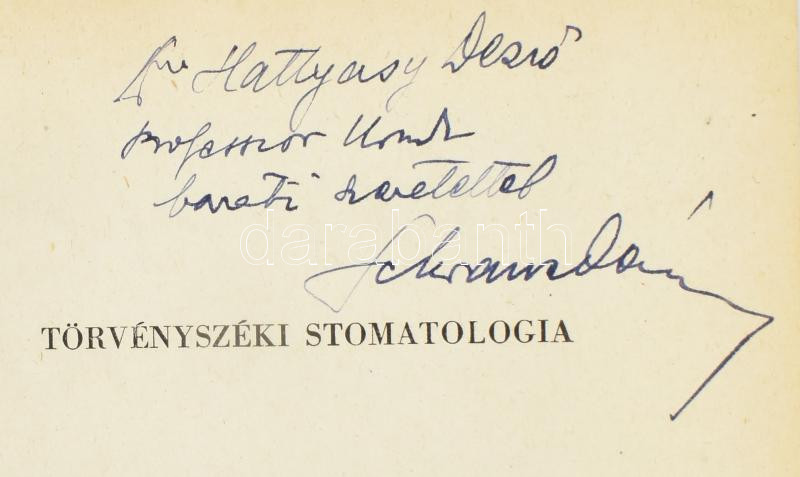 Dr Hattyasy Dezső
Professzor Urnak
baráti szeretettel
darabanth
Schranz Dénes
TÖRVÉNYSZÉKI STOMATOLOGIA